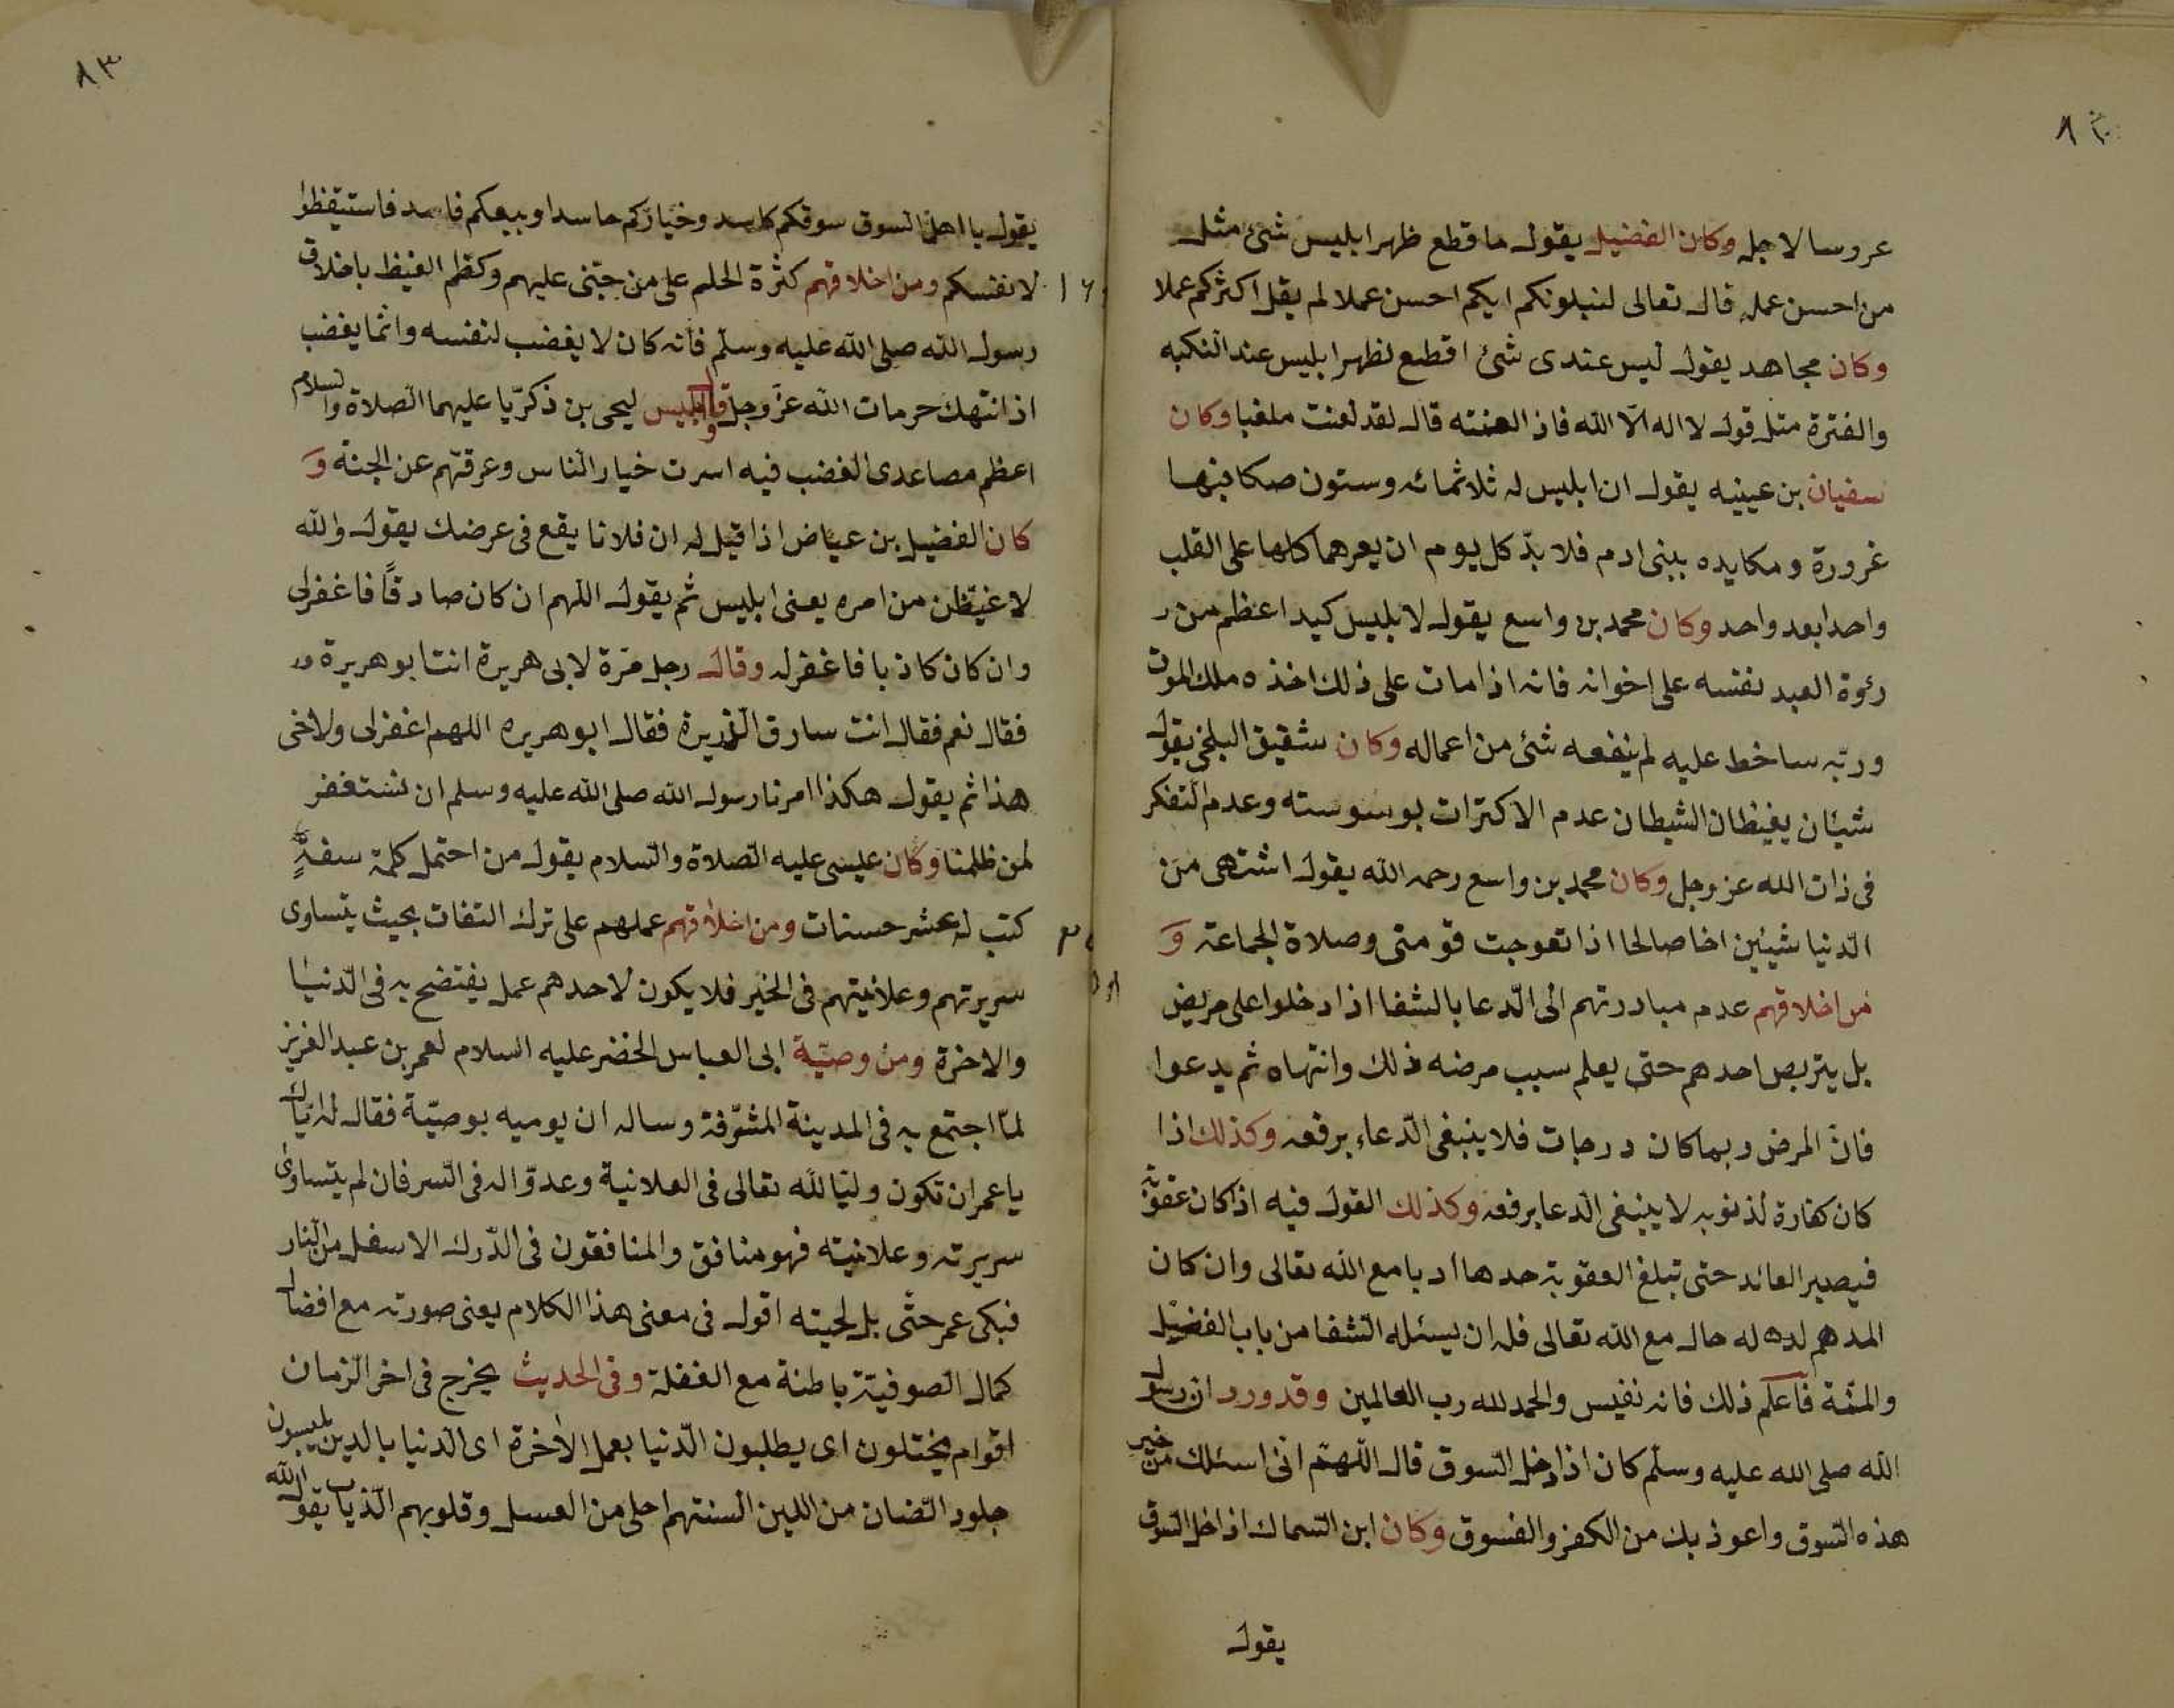 ٨٢
عروسا لاجله وكان الفضيل يقول ما قطع ظهر ابليس شئ مثل
من احسن عمله قال تعالى لنبلونكم ايكم احسن عملا لم يقل اكثركم عملا
وكان مجاهد يقول ليس عندى شئ اقطع لظهر ابليس عند النكبه
والفترة مثل قول لا اله الّا الله فاذا لعنته قال لقد لعنت ملعنا وكان
سفيان بن عيينه يقول ان ابليس له ثلاثمائه وستون صكا فيها
غروره ومكايده ببنى ادم فلا بدّ كل يوم ان يعرهما كلها على القلب
واحدا بعد واحد وكان محمد بن واسع يقول لابليس كيد اعظم من ر
رئوة العبد نفسه على اخوانه فانه اذا مات على ذلك اخذه ملك الموت
وربّه ساخط عليه لم ينفعه شئ من اعماله وكان شقيق البلخى يقول
شيئان يغيظان الشيطان عدم الاكترات بوسوسته وعدم التفكر
فى ذات الله عز وجل وكان محمد بن واسع رحمه الله يقول اشتهى من
الدّنيا شيئين اخا صالحا اذا تعوجت قومتى وصلاة الجماعة وَ
من اخلاقهم عدم مبادرتهم الى الدّعا بالشفا اذا دخلوا على مريض
بل يتربص احدهم حتى يعلم سبب مرضه ذلك وانتهاه ثم يدعوا
فانّ المرض ربما كان درجات فلا ينبغى الدّعاء برفعه وكذلك اذا
كان كفارة لذنوبه لا ينبغى الدعا برفعه وكذلك القول فيه اذا كان عقوبة
فيصير العائد حتى تبلغ العقوبة حدها ادبا مع الله تعالى وان كان
المدهم لده له حال مع الله تعالى فله ان يسئله الشفا من باب الفضيل
والمنّة فاعلم ذلك فانه نفيس والحمد لله رب العالمين وقد ورد ان رسول
الله صلى الله عليه وسلّم كان اذا دخل السوق قال اللّهمّ انى اسئلك من خير
هذه السّوق واعوذ بك من الكفر والفسوق وكان ابن السماك اذا دخل السوق
يقول
٨٣
يقول يا اهل السوق سوقكم كاسد وخياركم حاسدا وبيعكم فاسد فاستيقظوا
لانفسكم ومن اخلاقهم كثرة الحلم على من جنى عليهم وكظم الغيظ باخلاق
رسول الله صلى الله عليه وسلّم فانه كان لا يغضب لنفسه وانما يغضب
اذ انتهك حرمات الله عزّ وجل وقال ابليس ليحى بن ذكريّا عليهما الصلاة والسلام
اعظم مصاعدى الغضب فيه اسرت خيار الناس وعرقتهم عن الجنة وَ
كان الفضيل بن عياض اذا قيل له ان فلانا يقع فى عرضك يقول والله
لاغيّظن من امره يعنى ابليس ثم يقول اللهم ان كان صادقًا فاغفرلى
وان كان كاذبا فاغفر له وقال رجل مرّة لابى هريرة انت ابو هريرة
فقال نعم فقال انت سارق الذريرة فقال ابو هريره اللهم اغفرلى ولاخى
هذا ثم يقول هكذا امرنا رسول الله صلى الله عليه وسلم ان نستغفر
لمن ظلمنا وكان عيسى عليه الصلاة والسلام يقول من احتمل كلمة سفهٍ
كتب له عشر حسنات ومن اخلاقهم عملهم على ترك النفات بحيث يتساوى
سريرتهم وعلانيتهم فى الخير فلا يكون لاحدهم عمل يفتضح به فى الدّنيا
والاخرة ومن وصيّة ابى العباس الخضر عليه السلام لعمر بن عبد العزيز
لمّا اجتمع به فى المدينة المشرّفة وساله ان يوميه بوصيّة فقال له ايّاك
يا عمر ان تكون وليّا لله تعالى فى العلانية وعدوّا له فى السّر فان لم يتساوى
سريرته وعلانيته فهو منافق والمنافقون فى الدّرك الاسفل من النار
فبكى عمر حتّى بل لحيته اقول فى معنى هذا الكلام يعنى صورته مع افضال
كمال الصوفيّة باطنة مع الغفلة وفى الحديث يخرج فى اخر الزّمان
اقوام يختلون اى يطلبون الدّنيا بعمل الاخرة اى الدنيا بالدين يلبسون
جلود الضان من اللين السنتهم احلى من العسل وقلوبهم الذياب يقول الله